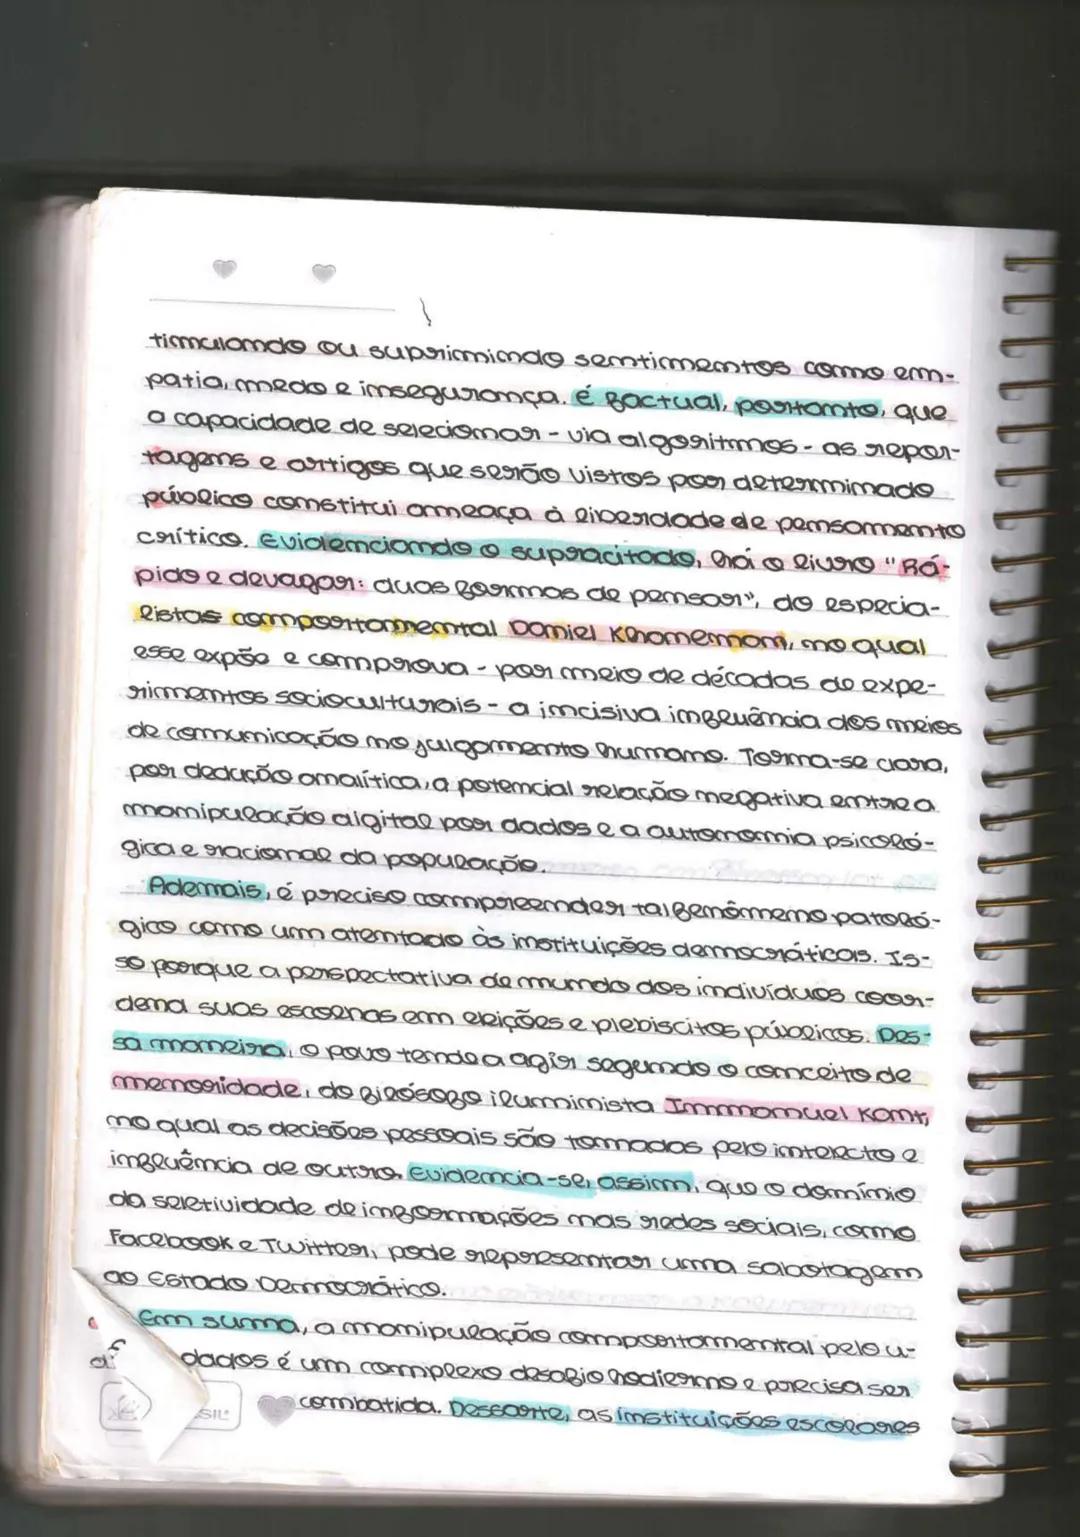 timulando ou suprimindo sentimentos como em-
patia, medo e insegurança. É factual, portanto, que
a capacidade de selecionar - via algoritmos - as repor-
tagens e artigos que serão vistos por determinado
público constitui ameaça à liberdade de pensamento
crítico. Evidenciando o supracitado, há o livro "Rá-
pido e devagar: duas formas de pensar", do especia-
listas comportamental Daniel Khanemam, no qual
esse expõe e comprova - por meio de décadas de expe-
rimentos socioculturais - a incisiva influência dos meios
de comunicação no julgamento humano. Torna-se clara,
por dedução analítica, a potencial relação negativa entre a
manipulação digital por dados e a autonomia psicoló-
gica e racional da população.
Ademais, é preciso compreender tal fenômeno patoló-
gico como um atentado às instituições democráticas. Is-
so porque a perspectativa de mundo dos indivíduos coor-
dena suas escolhas em eleições e plebiscitos públicos. Des-
sa maneira, o povo tende a agir segundo o conceito de
menoridade, do filósofo iluminista Immanuel Kant,
no qual as decisões pessoais são tomadas pelo intelecto e
influência de outro. Evidencia-se, assim, que o domínio
da seletividade de informações nas redes sociais, como
Facebook e Twitter, pode representar uma sabotagem
ao Estado Democrático.
Em suma, a manipulação comportamental pelo u-
dados é um complexo desafio hodierno e precisa ser
combatida. Dessarte, as instituições escolares